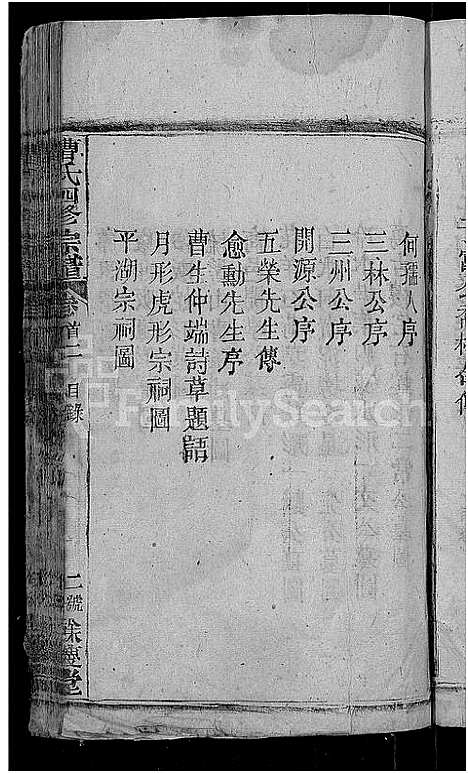 何孺人序
三林公序
三州公序
開源公序
五榮先生傳
愈勳先生序
曹生仲端詩草題語
月形虎形宗祠圖
平湖宗祠圖
曹氏四修宗譜
卷首二
目錄
二號
FamilySearch